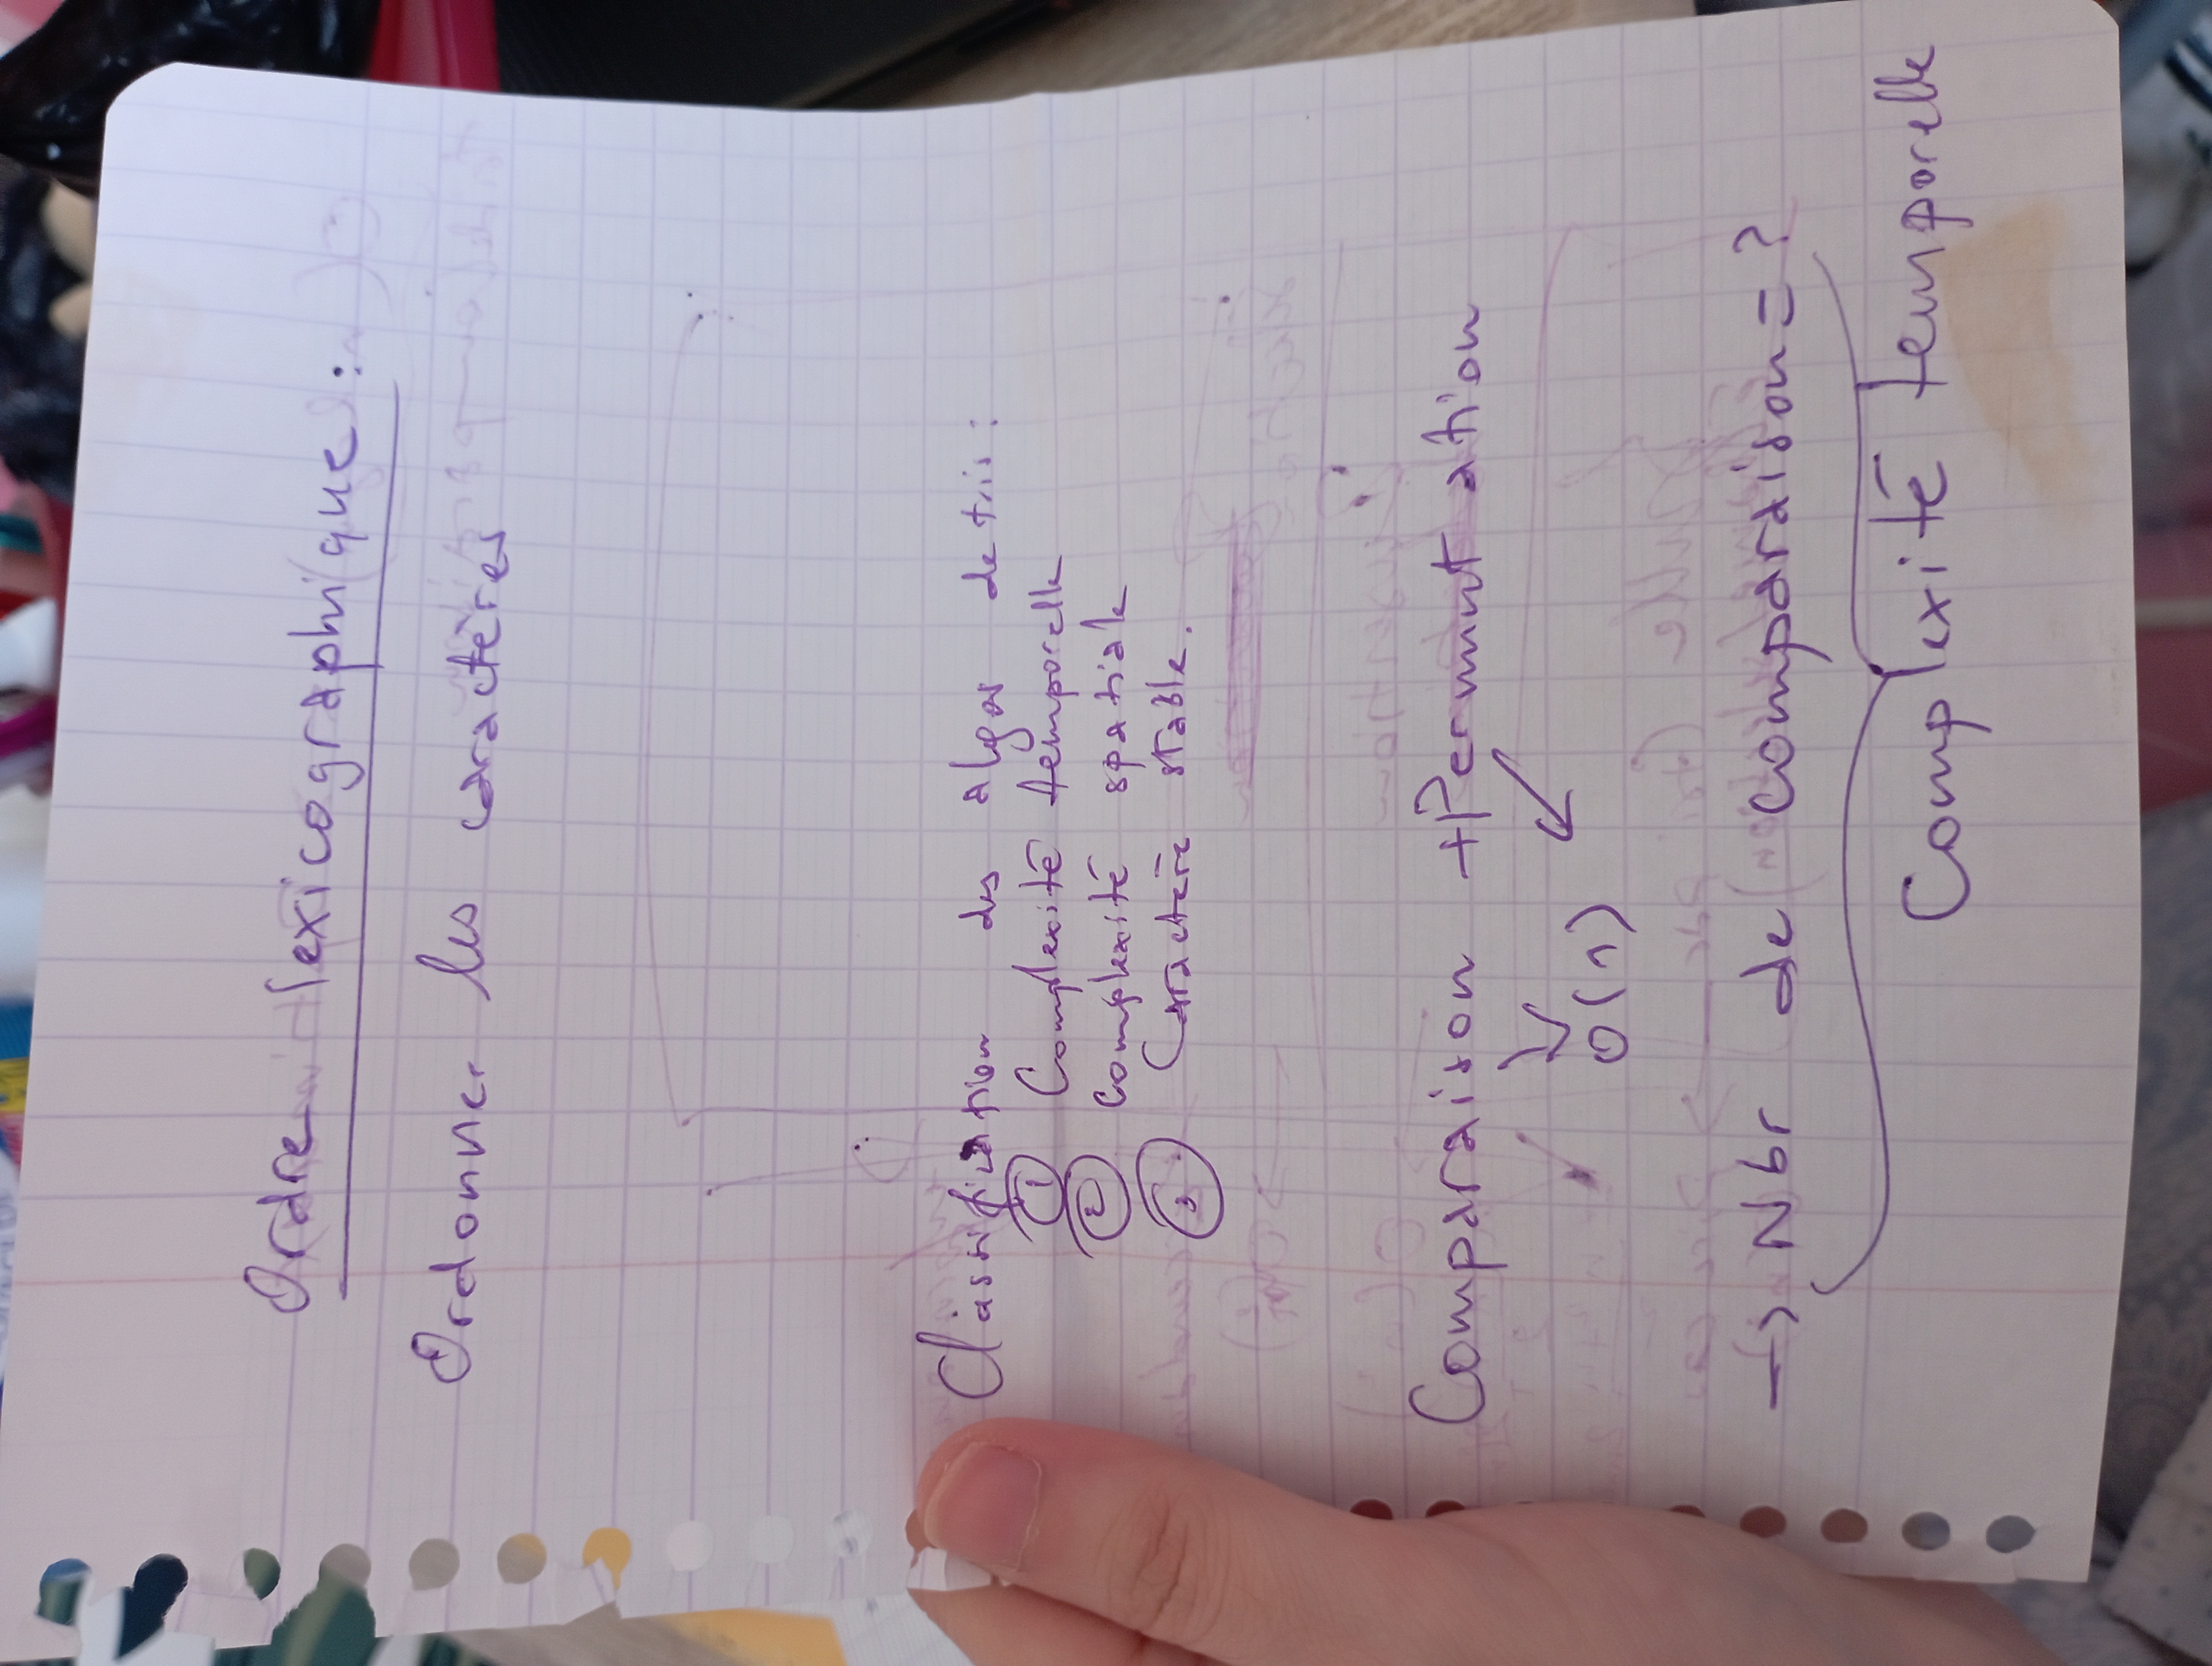 Ordre lexicographique :
Ordonner les caractères
Classification des algos de tris :
① Complexité temporelle
② Complexité spatiale
③ Caractère stable.
Comparaison + Permutation
O(1)
→ Nbr de comparaison = ?
Complexité temporelle